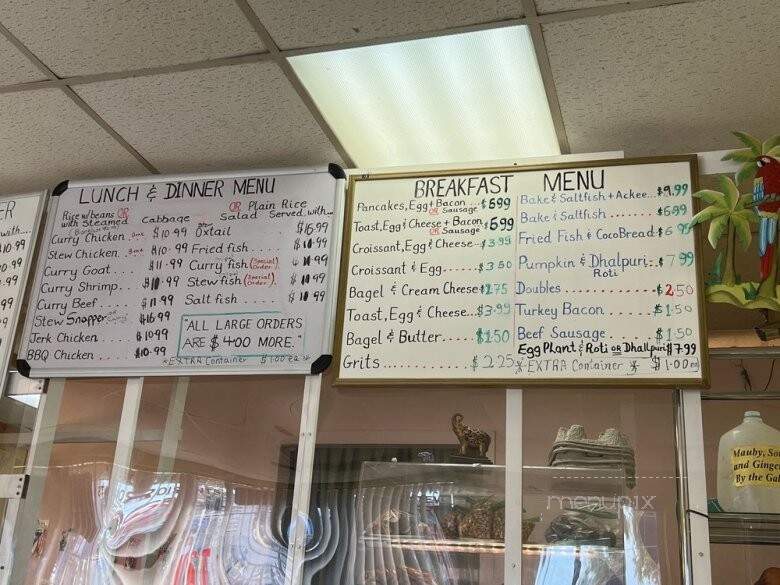 ER
with...
10.99
LUNCH & DINNER MENU
Rice w/beans OR OR Plain Rice
with Steamed Cabbage Salad Served with...
Curry Chicken $10.99
Stew Chicken $10.99
Curry Goat $11.99
Curry Shrimp $10.99
Curry Beef $11.99
Stew Snapper $16.99
Jerk Chicken $10.99
BBQ Chicken $10.99
Oxtail $16.99
Fried fish $10.99
Curry fish (Special Order) $10.99
Stew fish (Special Order) $10.99
Salt fish $10.99
"ALL LARGE ORDERS
ARE $4.00 MORE."
*EXTRA Container $1.00 ea *
BREAKFAST MENU
Pancakes, Egg + Bacon OR Sausage $6.99
Toast, Egg & Cheese + Bacon OR Sausage $6.99
Croissant, Egg & Cheese $3.99
Croissant & Egg $3.50
Bagel & Cream Cheese $2.75
Toast, Egg & Cheese $3.99
Bagel & Butter $1.50
Grits $2.25
Bake & Saltfish + Ackee $9.99
Bake & Saltfish $6.99
Fried Fish & CocoBread $6.99
Pumpkin & Dhalpuri Roti $7.99
Doubles $2.50
Turkey Bacon $1.50
Beef Sausage $1.50
Egg Plant & Roti OR Dhallpuri $7.99
*-EXTRA Container * $1.00 ea
Mauby,
and Ginger
By the Gal
menupix